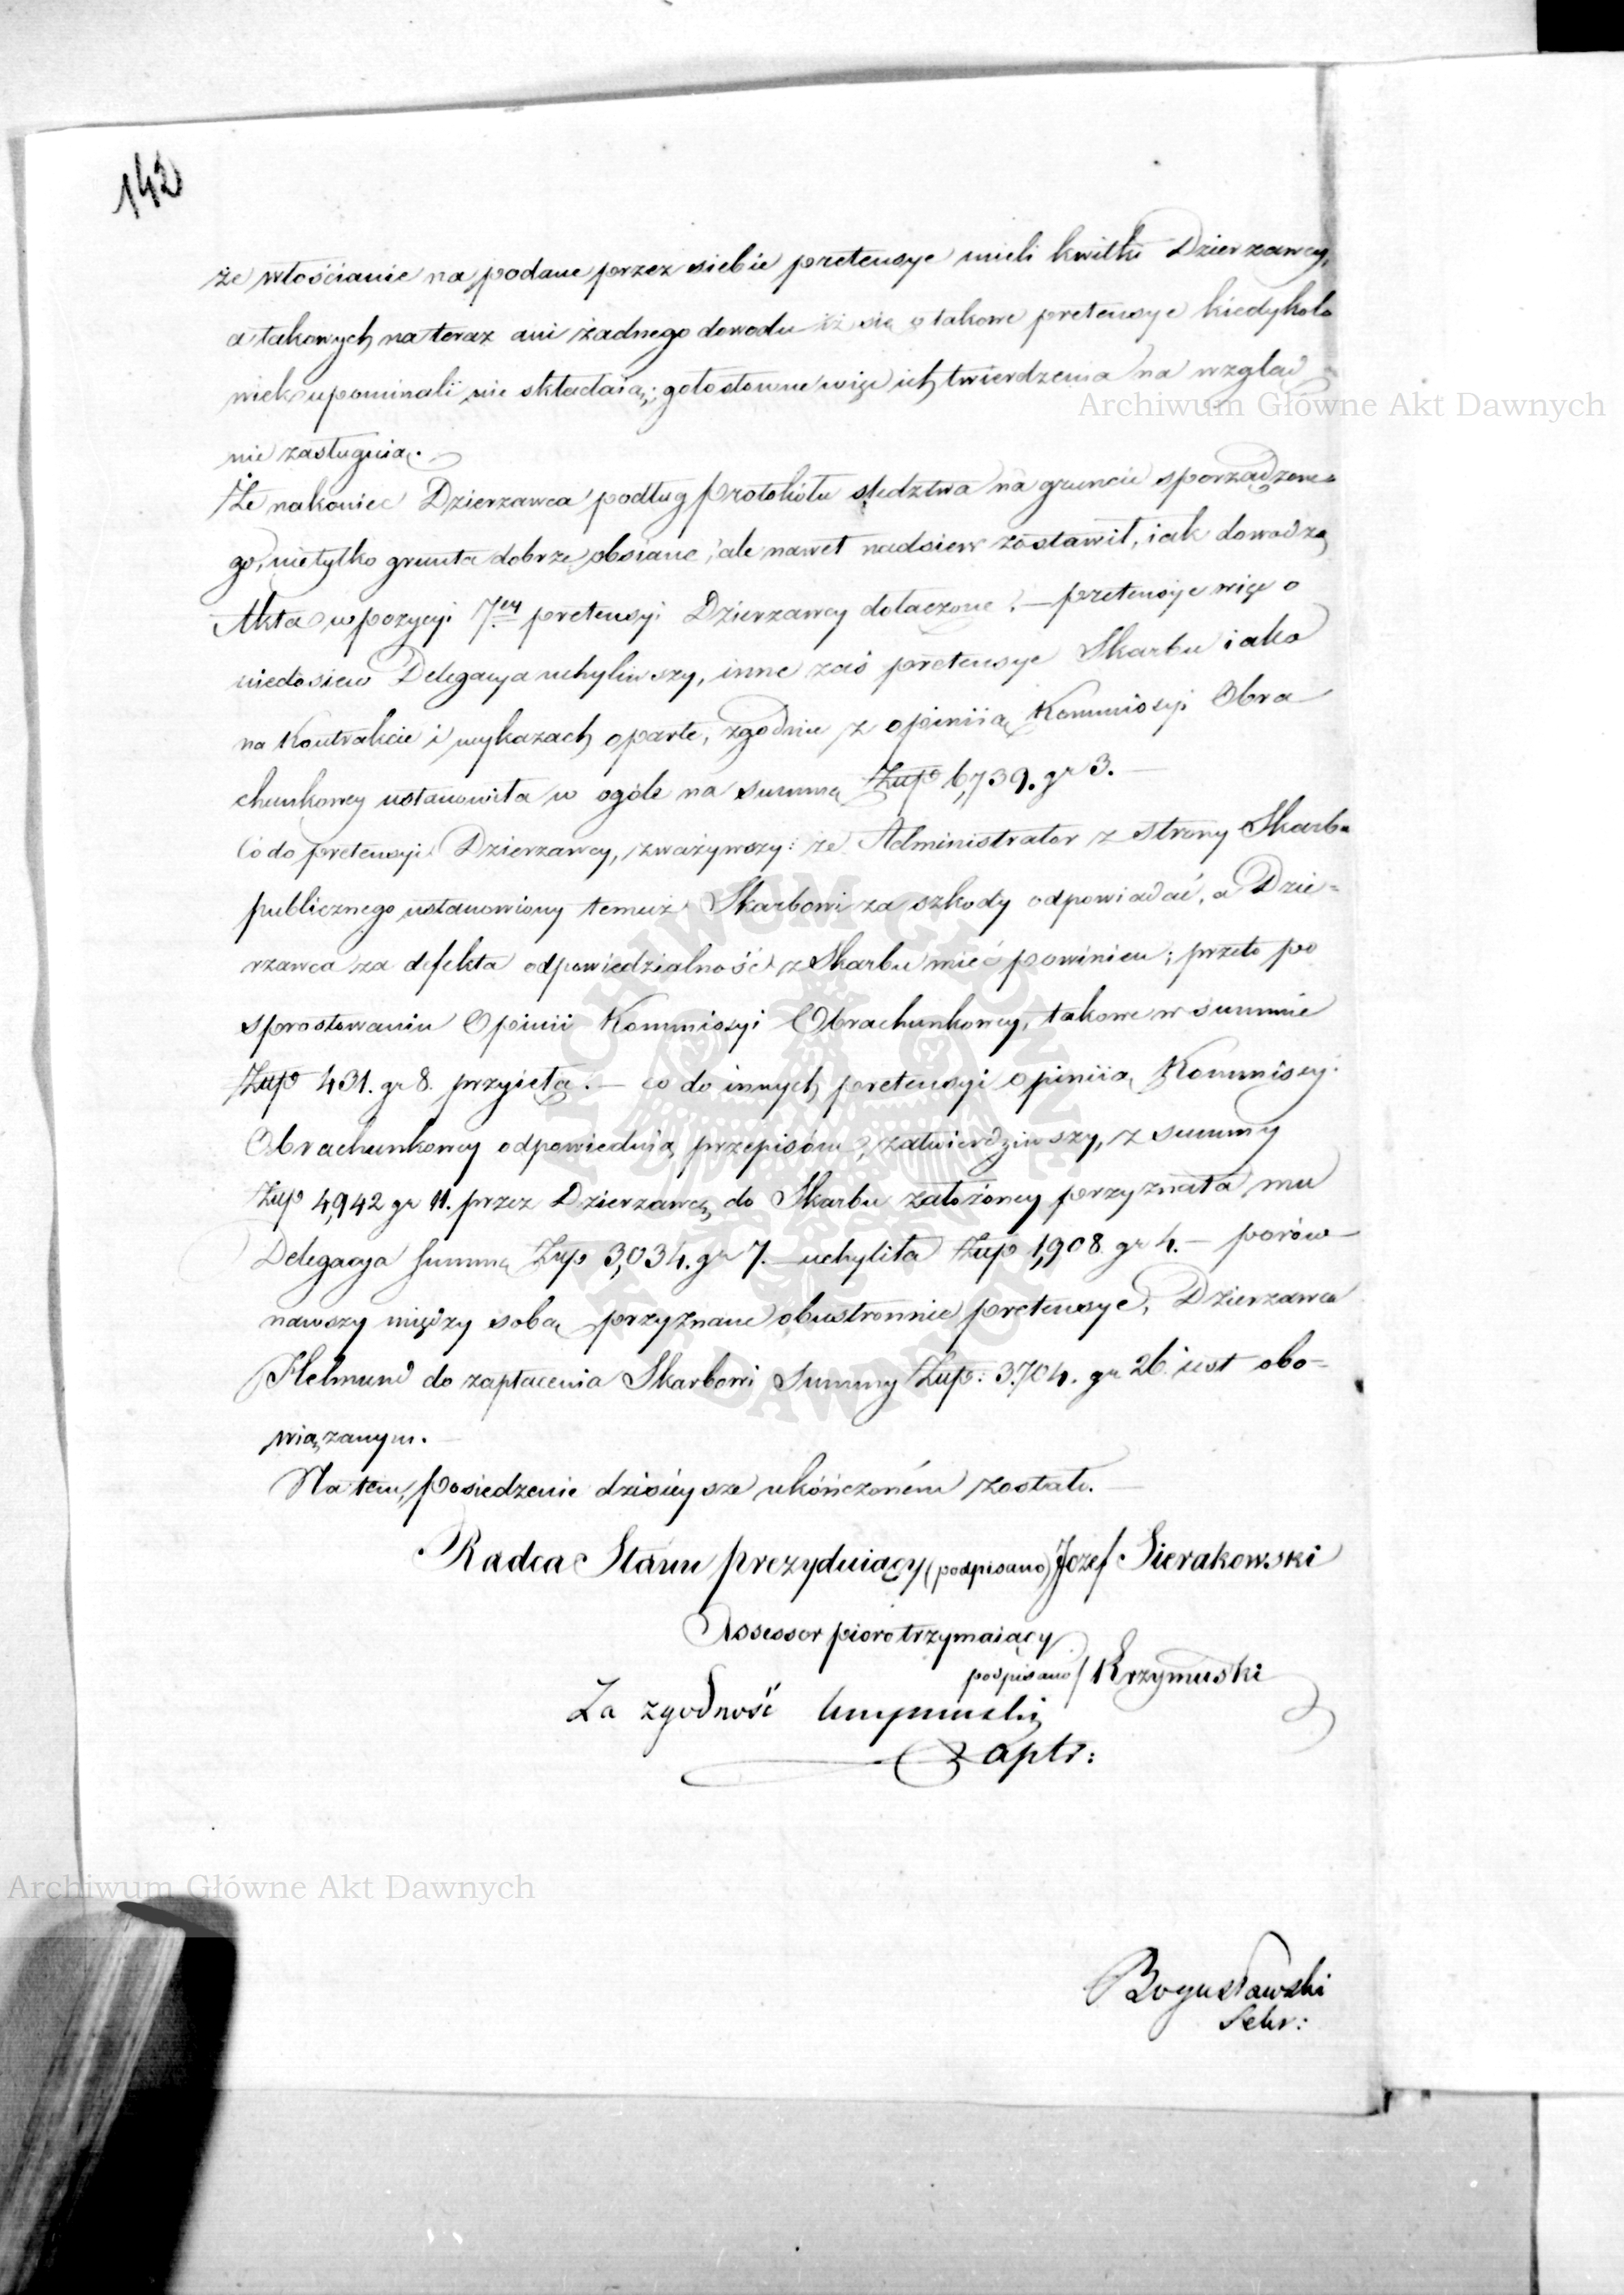 142
że włościanie na podane przez siebie pretensye mieli kwitki Dzierzawcy,
a takowych na teraz ani żadnego dowodu iż się o takowe pretensye kiedykol-
wiek upominali nie składaią; gołosłowne więc ich twierdzenia na wzgląd
Archiwum Główne Akt Dawnych
nie zasługuią.
Że nakoniec Dzierzawca podług Protokółu śledztwa na gruncie sporządzone-
go, nietylko grunta dobrze obsiane, ale nawet nadsiew zostawił, iak dowodzą
Akta w pozycyi 7ey pretensyi Dzierzawcy dołączone. — pretensye więc o
niedosiew Delegacya uchyliwszy, inne zaś pretensye Skarbu iako
na Kontrakcie i wykazach oparte, zgodnie z opiniią Kommissyi Obra
chunkowey ustanowiła w ogóle na summę Złp 6,739. gr 3. —
Co do pretensyi Dzierzawcy, zważywszy: że Administrator z strony Skarbu
publicznego ustanowiony temuż Skarbowi za szkody odpowiadać, a Dzie=
rzawca za defekta odpowiedzialność z Skarbu mieć powinien; przeto po
sprostowaniu Opinii Kommissyi Obrachunkowey, takowe w summie
Złp 431. gr 8. przyięła. — co do innych pretensyi opiniią Kommissyi
Obrachunkowey odpowiednią przepisom, zatwierdziwszy, z summy
Złp 4,942 gr 11. przez Dzierzawcę do Skarbu założoney przyznała mu
Delegacya summę Złp 3,034. gr 7. — uchyliła Złp 1,908. gr 4. — porów-
nawszy między sobą przyznane obustronnie pretensye, Dzierzawca
Helmund do zapłacenia Skarbowi Summy Złp: 3.704. gr 26. iest obo-
wiązanym. —
Na tem, posiedzenie dzisieysze ukończoném zostało. —
Radca Stanu prezyduiący (podpisano) Józef Sierakowski
Assessor pioro trzymaiący
podpisano / Krzymuski
Za zgodność Krzymuski
Archiwum Główne Akt Dawnych
Bogusławski
Sekr: